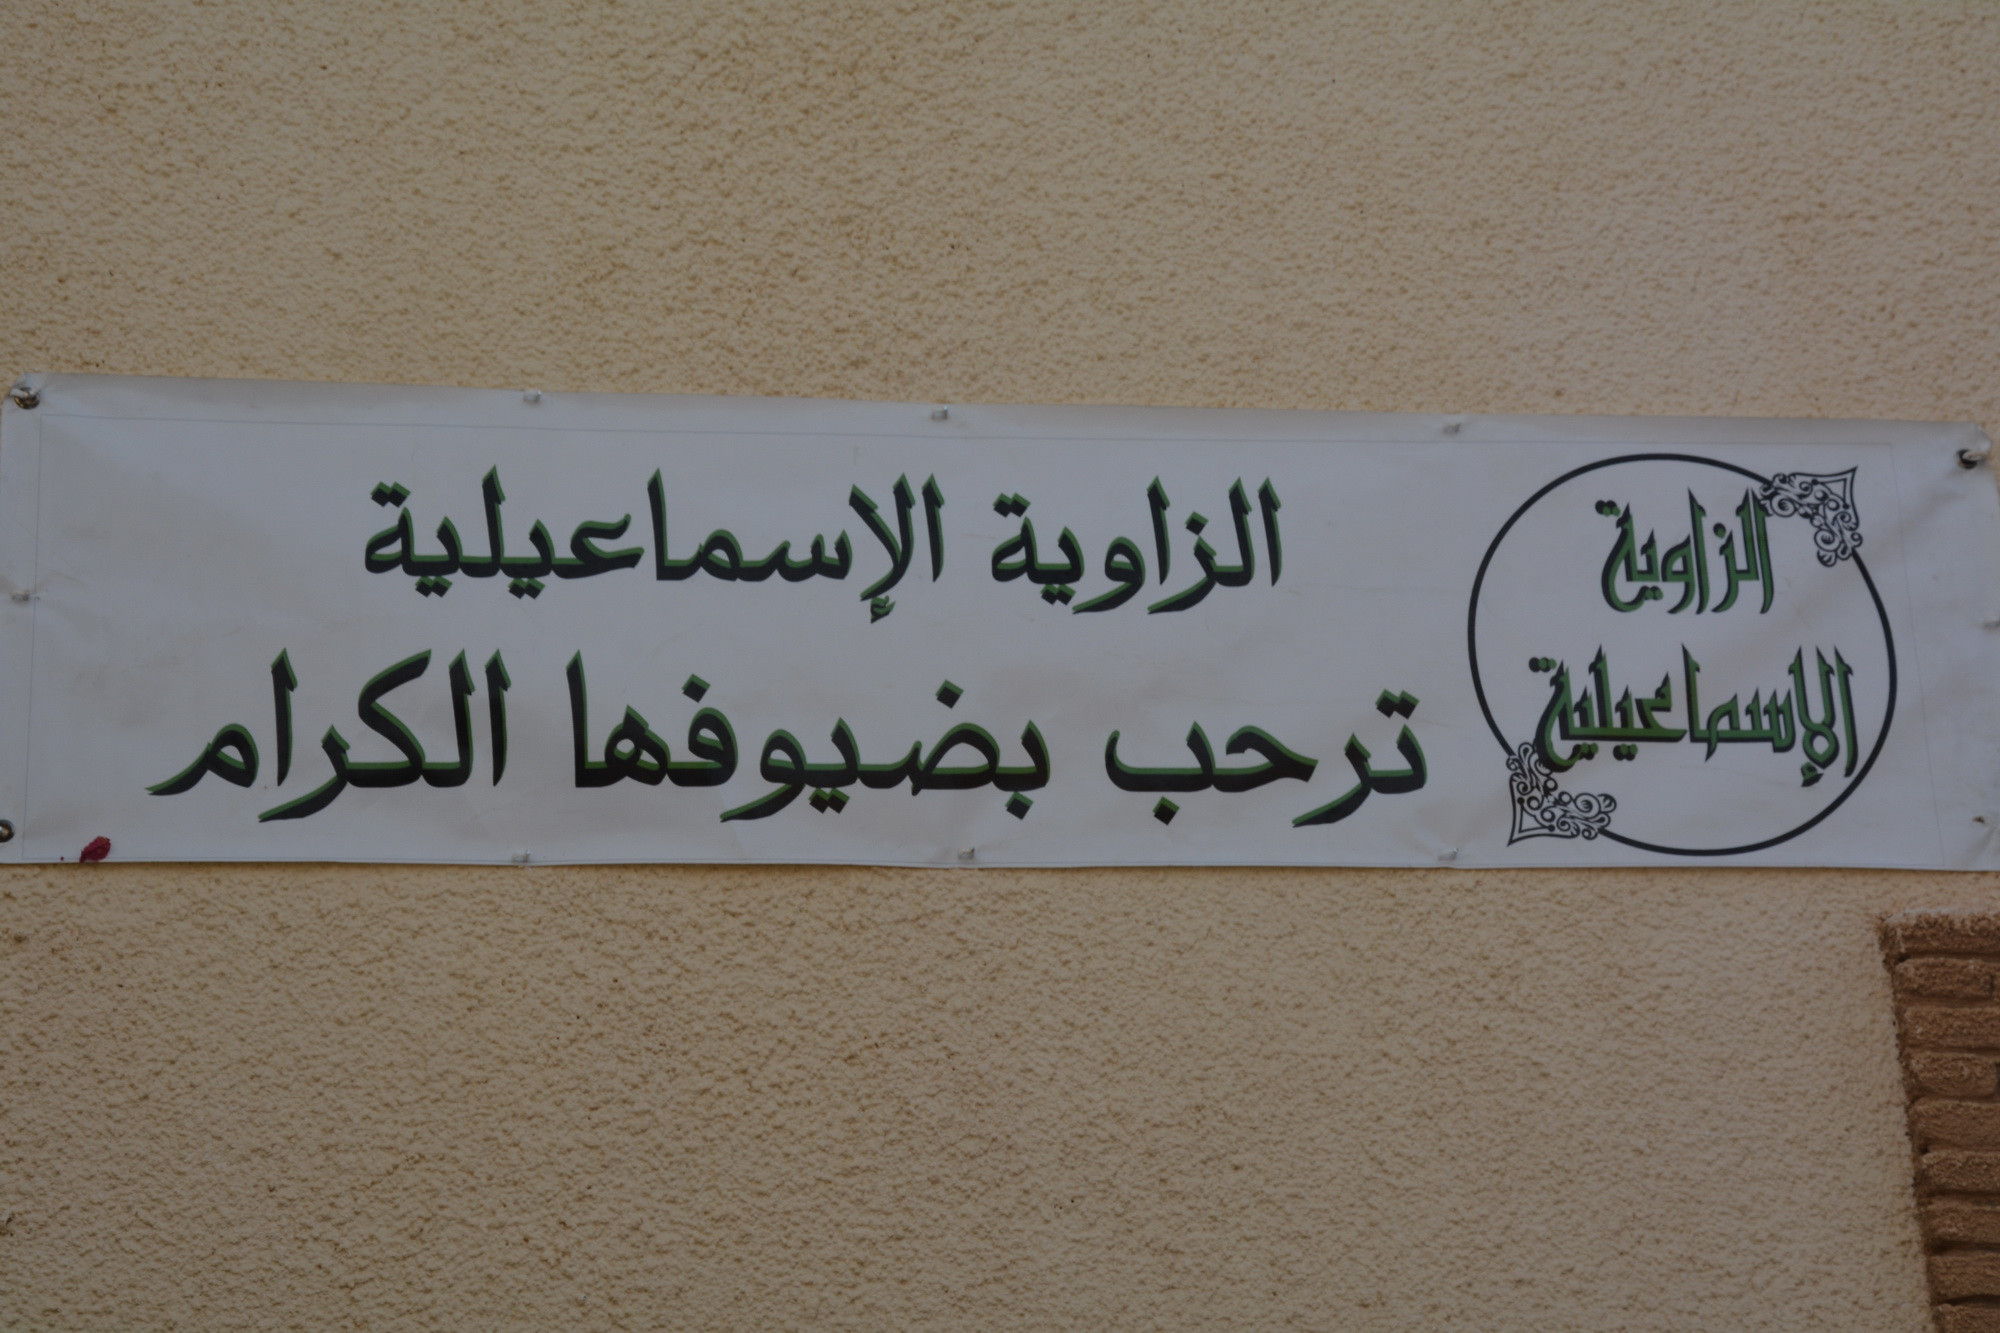 الزاوية
الإسماعيلية
الزاوية الإسماعيلية
ترحب بضيوفها الكرام